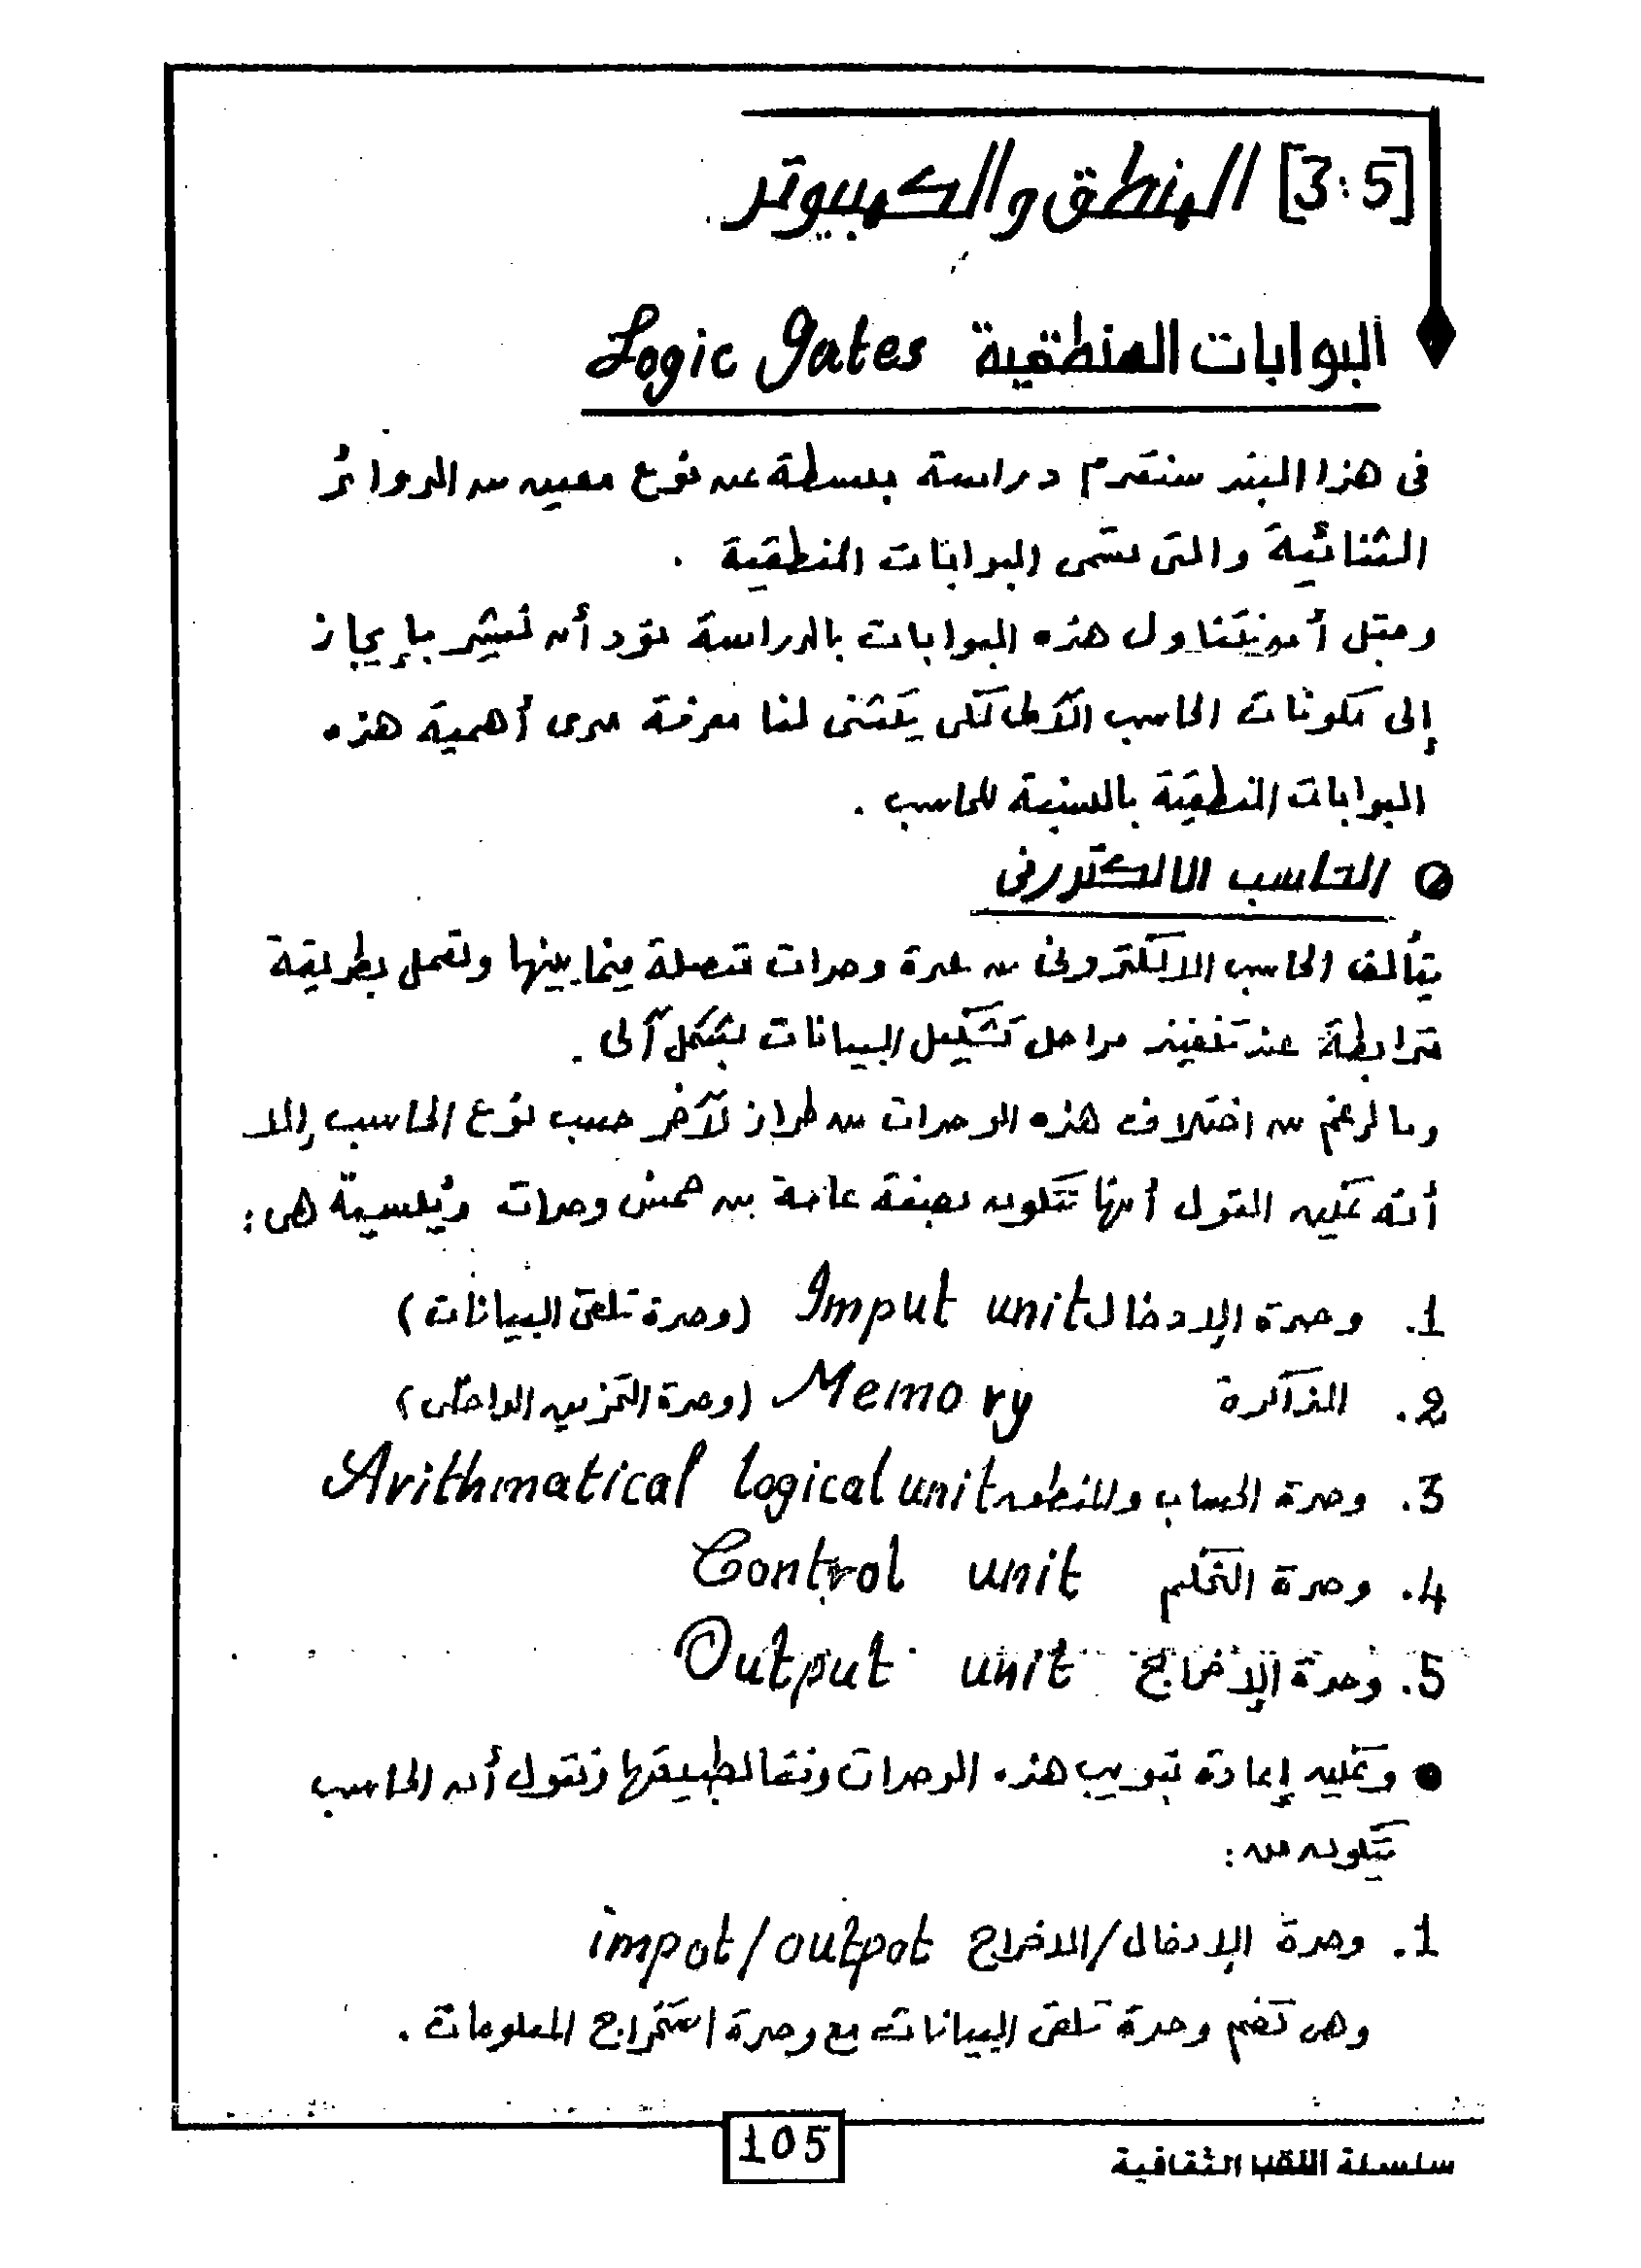 [3:5] المنطق والكمبيوتر
البوابات المنطقية Logic gates
فى هذا البند سنقدم دراسة بسيطة عن نوع معين من الدوائر
الثنائية والتى تسمى البوابات المنطقية .
وقبل أن نتناول هذه البوابات بالدراسة نود أن نشير بإيجاز
إلى مكونات الحاسب الآلى لكى يتسنى لنا معرفة مدى أهمية هذه
البوابات المنطقية بالنسبة للحاسب .
الحاسب الالكترونى
يتألف الحاسب الالكترونى من عدة وحدات متصلة فيما بينها وتعمل بطريقة
مترابطة عند تنفيذ مراحل تشكيل البيانات بشكل آلى .
وبالرغم من اختلاف هذه الوحدات من طراز لآخر حسب نوع الحاسب إلا
أنه يمكن القول أنها تتكون بصفة عامة من خمس وحدات رئيسية هى :
1. وحدة الإدخال Imput unit (وحدة تلقى البيانات)
2. الذاكرة Memory (وحدة التخزين الداخلى)
3. وحدة الحساب والمنطق Arithmatical logical unit
4. وحدة التحكم Control unit
5. وحدة الإخراج Output unit
● ويمكن إعادة تبويب هذه الوحدات وفقا لطبيعتها ونقول أن الحاسب
يتكون من :
1. وحدة الإدخال/الاخراج impot/outpot
وهى تضم وحدة تلقى البيانات مع وحدة استخراج المعلومات .
105
سلسلة اللقب الثقافية